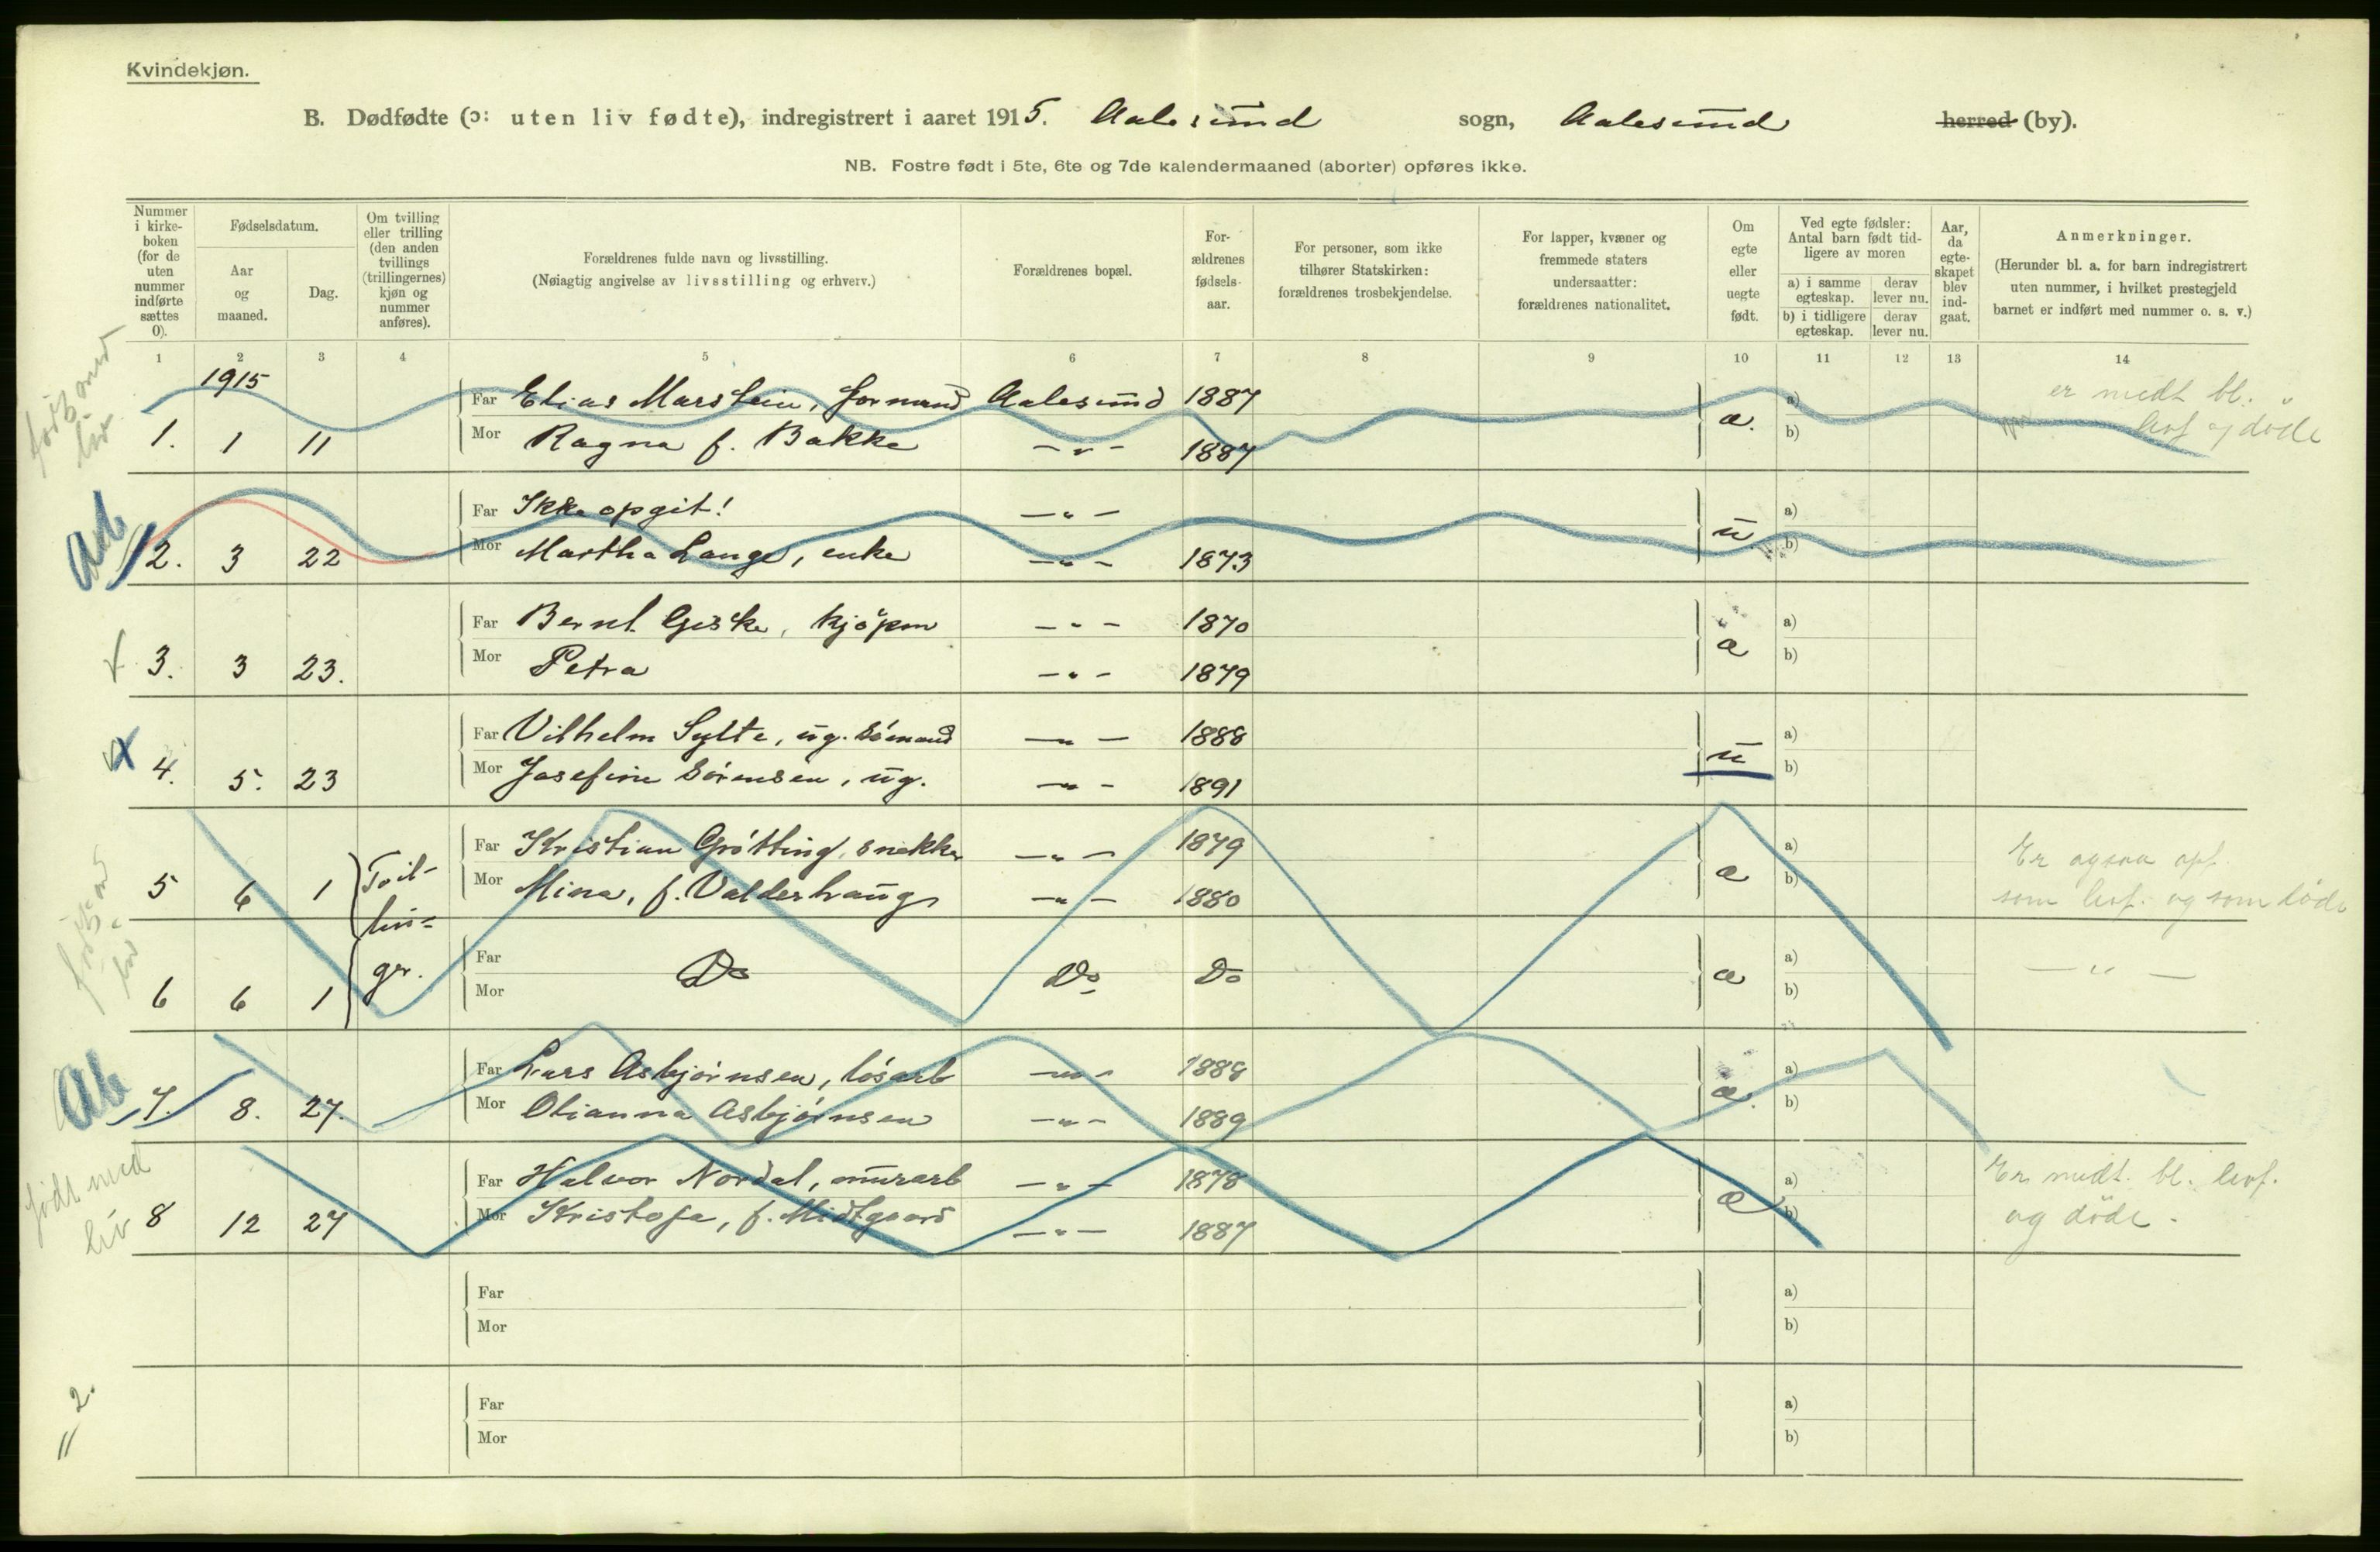 Kvindekjøn.
B. Dødfødte (ɔ: uten liv fødte), indregistrert i aaret 1915. Aalesund sogn, Aalesund herred (by).
NB. Fostre født i 5te, 6te og 7de kalendermaaned (aborter) opføres ikke.
Nummer i kirke-boken (for de uten nummer indførte sættes 0).
Fødselsdatum.
Aar og maaned.
Dag.
Om tvilling eller trilling (den anden tvillings (trillingernes) kjøn og nummer anføres).
Forældrenes fulde navn og livsstilling.
(Nøiagtig angivelse av livsstilling og erhverv.)
Forældrenes bopæl.
For-ældrenes fødsels-aar.
For personer, som ikke tilhører Statskirken: forældrenes trosbekjendelse.
For lapper, kvæner og fremmede staters undersaatter: forældrenes nationalitet.
Om egte eller uegte født.
Ved egte fødsler: Antal barn født tid-ligere av moren
a) i samme egteskap.
derav lever nu.
b) i tidligere egteskap.
derav lever nu.
Aar, da egte-skapet blev ind-gaat.
Anmerkninger.
(Herunder bl. a. for barn indregistrert uten nummer, i hvilket prestegjeld barnet er indført med nummer o. s. v.)
1 2 3 4 5 6 7 8 9 10 11 12 13 14
1915
Far Elias Marstein, formand Aalesund 1887 a) er medt bl.
1. 1 11 Mor Ragna f. Bakke — " — 1887 æ. b) levf og døde
Ab
Far Ikke opgit! — " — a)
2. 3 22 Mor Martha Lange, enke — " — 1873 u b)
Far Bernt Giske, kjøpm — " — 1870 a)
3. 3 23. Mor Petra — " — 1879 æ b)
Far Vilhelm Sylte, ug. sømand — " — 1888 a)
4. 5. 23 Mor Josefine Sørensen, ug. — " — 1891 u b)
Far Kristian Grøtting, snekker — " — 1879 a) Er ogsaa opf.
5 6 1 Tvil- Mor Mina, f. Valderhaug — " — 1880 æ b) som levf. og som døde
lin-
Far Do Do Do a) — " —
6 6 1 ger. Mor æ b)
Ab
Far Lars Asbjørnsen, løsarb — " — 1888 a)
7. 8. 27. Mor Olianna Asbjørnsen — " — 1889 æ. b)
født med
liv
Far Halvor Nordal, murarb — " — 1878 a) Er medt. bl. levf.
8 12 27 Mor Kristofa, f. Midtgaard — " — 1887 æ b) og døde.
Far a)
Mor b)
Far a)
Mor b)
2.